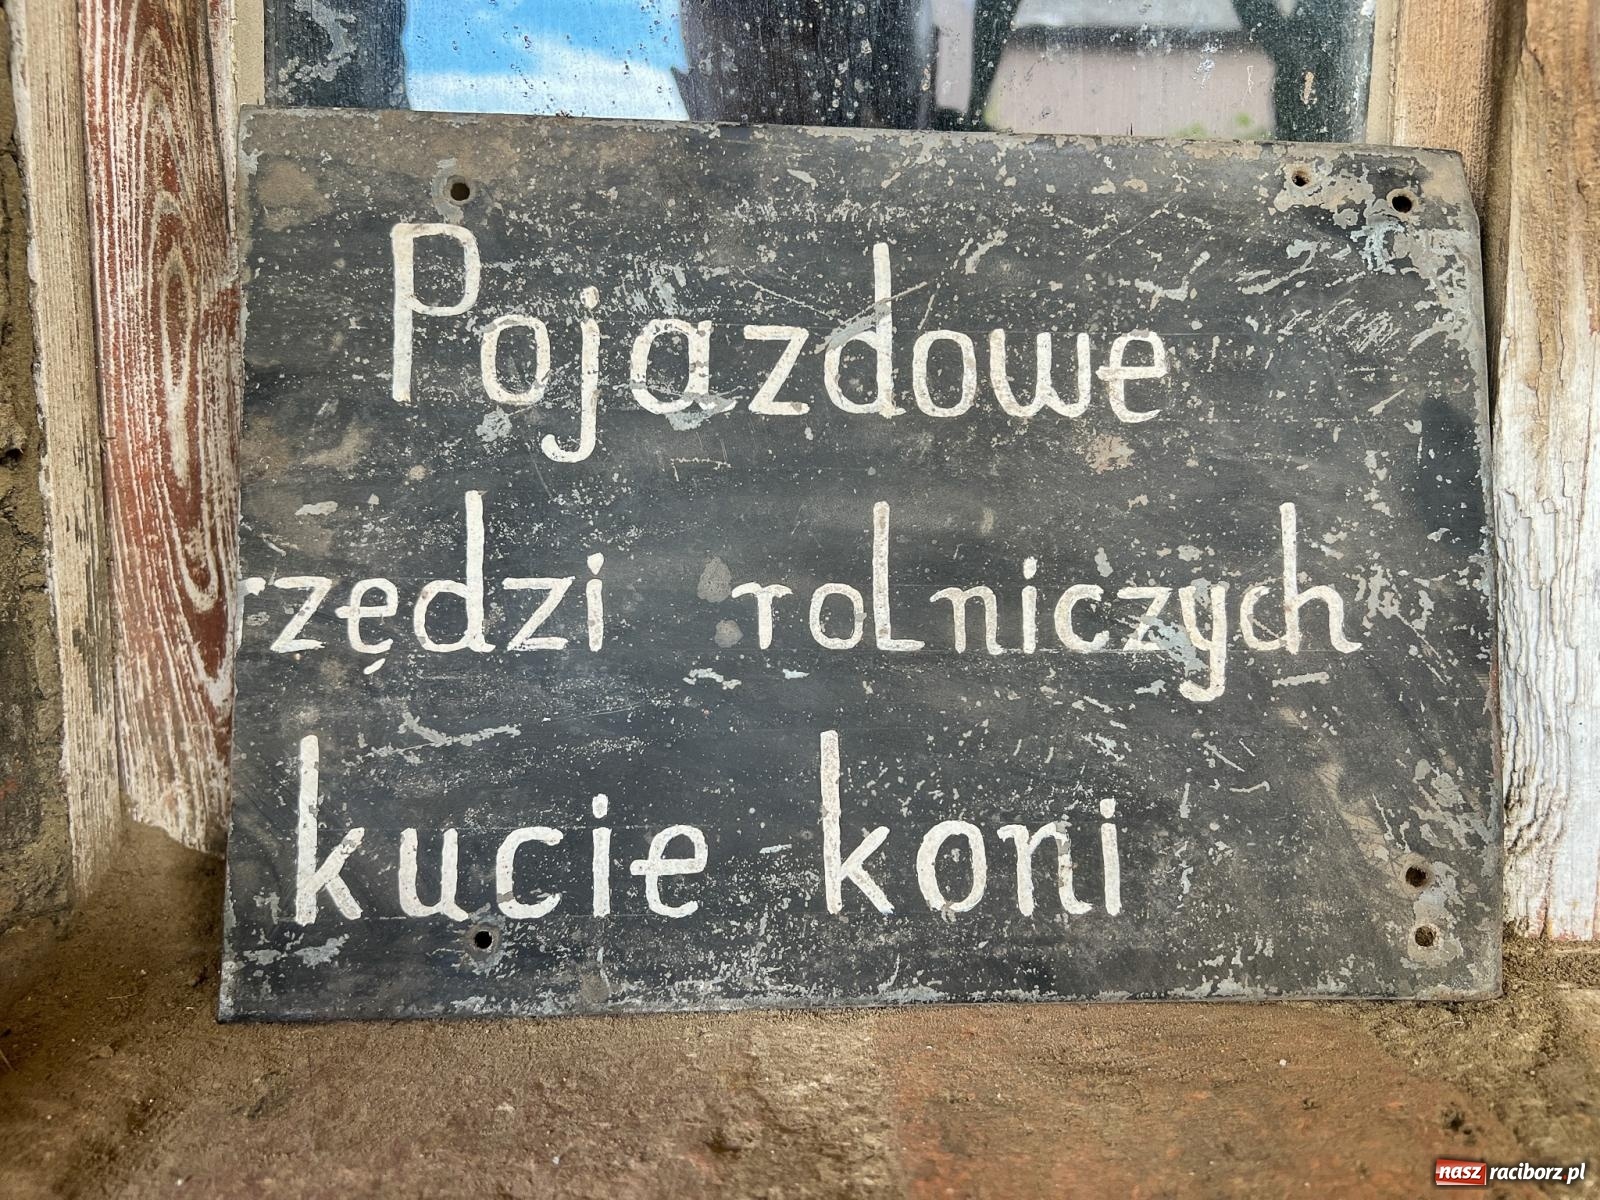 Pojazdowe
rzędzi rolniczych
kucie koni
nasz raciborz.pl